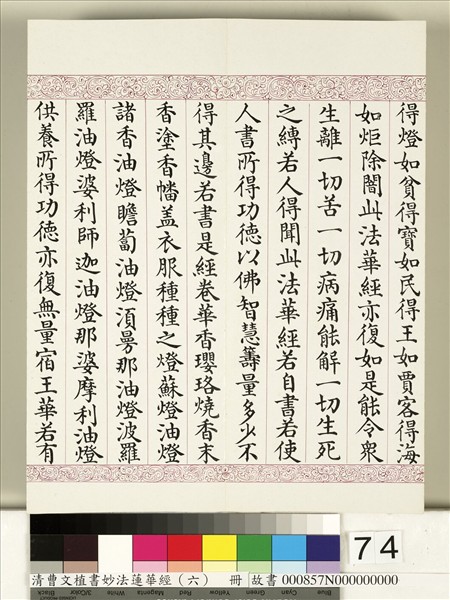 得燈如貧得寶如民得王如賈客得海
如炬除闇此法華經亦復如是能令眾
生離一切苦一切病痛能解一切生死
之縛若人得聞此法華經若自書若使
人書所得功德以佛智慧籌量多少不
得其邊若書是經卷華香瓔珞燒香末
香塗香幡蓋衣服種種之燈蘇燈油燈
諸香油燈瞻蔔油燈須曼那油燈波羅
羅油燈婆利師迦油燈那婆摩利油燈
供養所得功德亦復無量宿王華若有
74
Blue Cyan Green Yellow Red Magenta White 3/Color Black
清曹文植書妙法蓮華經（六） 冊 故書 000857N000000000